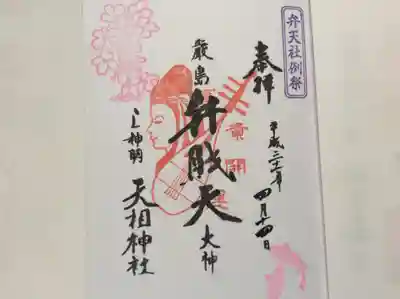 弁天社例祭
奉拝
平成三十一年四月十四日
厳島
弁財天
大神
上神明
天祖神社